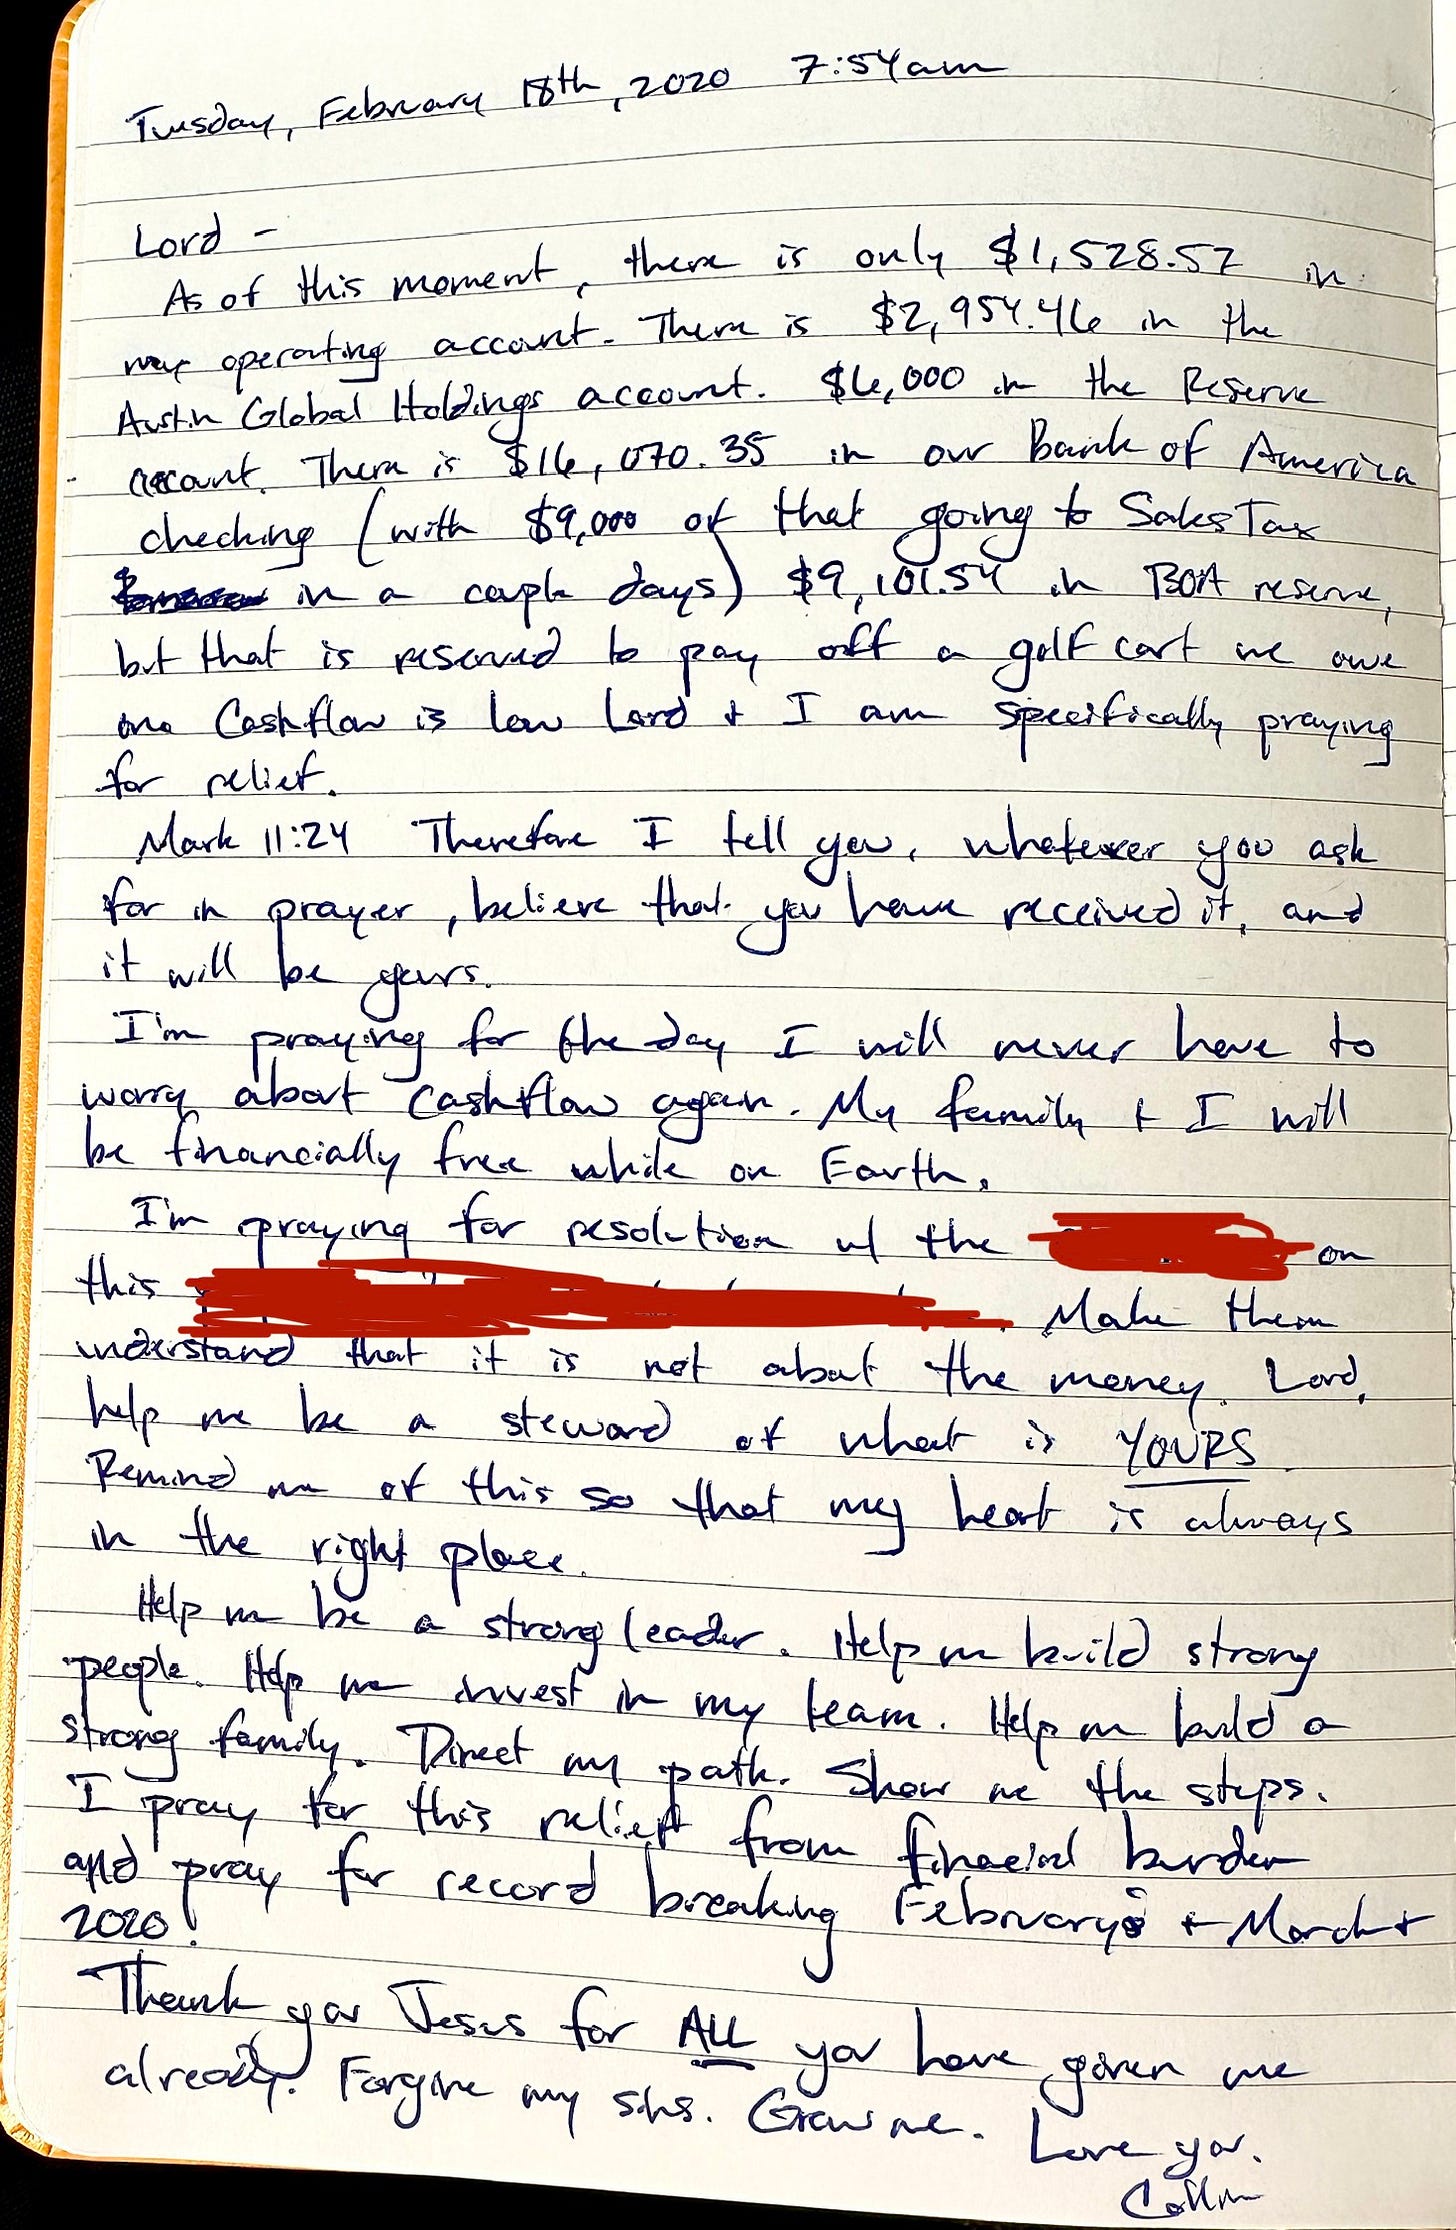 Tuesday, February 18th, 2020 7:54am
Lord -
As of this moment, there is only $1,528.57 in
my operating account. There is $2,954.46 in the
Austin Global Holdings account. $6,000 in the Reserve
account. There is $16,070.35 in our Bank of America
checking (with $9,000 of that going to Sales Tax
in a couple days) $9,101.54 in BOA reserve,
but that is reserved to pay off a golf cart we owe
on. Cashflow is low Lord + I am specifically praying
for relief.
Mark 11:24 Therefore I tell you, whatever you ask
for in prayer, believe that you have received it, and
it will be yours.
I'm praying for the day I will never have to
worry about cashflow again. My family + I will
be financially free while on Earth.
I'm praying for resolution w/ the on
this Make them
understand that it is not about the money. Lord,
help me be a steward of what is YOURS.
Remind me of this so that my heart is always
in the right place.
Help me be a strong leader. Help me build strong
people. Help me invest in my team. Help me build a
strong family. Direct my path. Show me the steps.
I pray for this relief from financial burden
and pray for record breaking February + March
2020!
Thank you Jesus for ALL you have given me
already. Forgive my sins. Grow me. Love you.